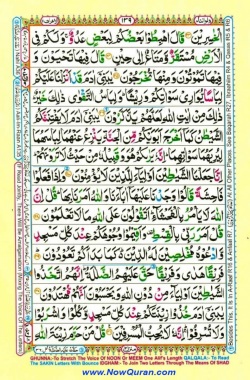 ١٣٩
الْخٰسِرِيْنَ ۝ قَالَ اهْبِطُوْا بَعْضُكُمْ لِبَعْضٍ عَدُوٌّ ۚ وَلَكُمْ فِى
الْاَرْضِ مُسْتَقَرٌّ وَّمَتَاعٌ اِلٰى حِيْنٍ ۝ قَالَ فِيْهَا تَحْيَوْنَ وَ
فِيْهَا تَمُوْتُوْنَ وَمِنْهَا تُخْرَجُوْنَ ۝ يٰبَنِىْۤ اٰدَمَ قَدْ اَنْزَلْنَا عَلَيْكُمْ
لِبَاسًا يُّوَارِىْ سَوْاٰتِكُمْ وَرِيْشًا ؕ وَلِبَاسُ التَّقْوٰى ذٰلِكَ خَيْرٌ ؕ
ذٰلِكَ مِنْ اٰيٰتِ اللّٰهِ لَعَلَّهُمْ يَذَّكَّرُوْنَ ۝ يٰبَنِىْۤ اٰدَمَ لَا يَفْتِنَنَّكُمُ
الشَّيْطٰنُ كَمَاۤ اَخْرَجَ اَبَوَيْكُمْ مِّنَ الْجَنَّةِ يَنْزِعُ عَنْهُمَا لِبَاسَهُمَا
لِيُرِيَهُمَا سَوْاٰتِهِمَا ؕ اِنَّهٗ يَرٰىكُمْ هُوَ وَقَبِيْلُهٗ مِنْ حَيْثُ لَا تَرَوْنَهُمْ ؕ
اِنَّا جَعَلْنَا الشَّيٰطِيْنَ اَوْلِيَآءَ لِلَّذِيْنَ لَا يُؤْمِنُوْنَ ۝ وَاِذَا فَعَلُوْا
فَاحِشَةً قَالُوْا وَجَدْنَا عَلَيْهَاۤ اٰبَآءَنَا وَاللّٰهُ اَمَرَنَا بِهَا ؕ قُلْ اِنَّ
اللّٰهَ لَا يَاْمُرُ بِالْفَحْشَآءِ ؕ اَتَقُوْلُوْنَ عَلَى اللّٰهِ مَا لَا تَعْلَمُوْنَ ۝
قُلْ اَمَرَ رَبِّىْ بِالْقِسْطِ ۫ وَاَقِيْمُوْا وُجُوْهَكُمْ عِنْدَ كُلِّ مَسْجِدٍ
وَّادْعُوْهُ مُخْلِصِيْنَ لَهُ الدِّيْنَ ؕ كَمَا بَدَاَكُمْ تَعُوْدُوْنَ ۝
فَرِيْقًا هَدٰى وَفَرِيْقًا حَقَّ عَلَيْهِمُ الضَّلٰلَةُ ؕ اِنَّهُمُ اتَّخَذُوا
الشَّيٰطِيْنَ اَوْلِيَآءَ مِنْ دُوْنِ اللّٰهِ وَيَحْسَبُوْنَ اَنَّهُمْ مُّهْتَدُوْنَ ۝
يٰبَنِىْۤ اٰدَمَ خُذُوْا زِيْنَتَكُمْ عِنْدَ كُلِّ مَسْجِدٍ وَّكُلُوْا وَاشْرَبُوْا
وَلَا تُسْرِفُوْا ۚ اِنَّهٗ لَا يُحِبُّ الْمُسْرِفِيْنَ ۝
GHUNNA:- To Stretch The Voice Of NOON Or MEEM One Alif's Length QALQALA:- To Read
The SAKIN Letters With Bounce IDGHAM:- To Join Two Letters Through The Means Of SHAD
www.NowQuran.com